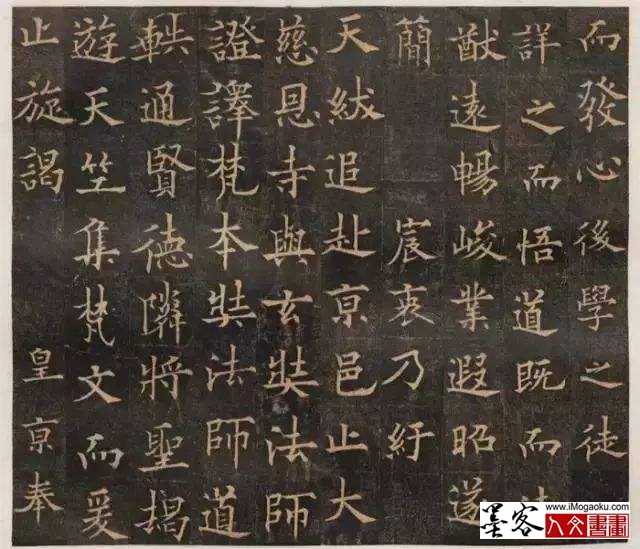 而發心後學之徒
詳之而悟道既而
猷遠暢峻業遐昭遂
簡 宸衷乃紆
天綍追赴亰邑止大
慈恩寺與玄奘法師
證譯梵本奘法師道
軼通賢德隣將聖朅
遊天竺集梵文而爰
止旋謁 皇亰奉
墨客
www.iMogaoku.com
人文書畫